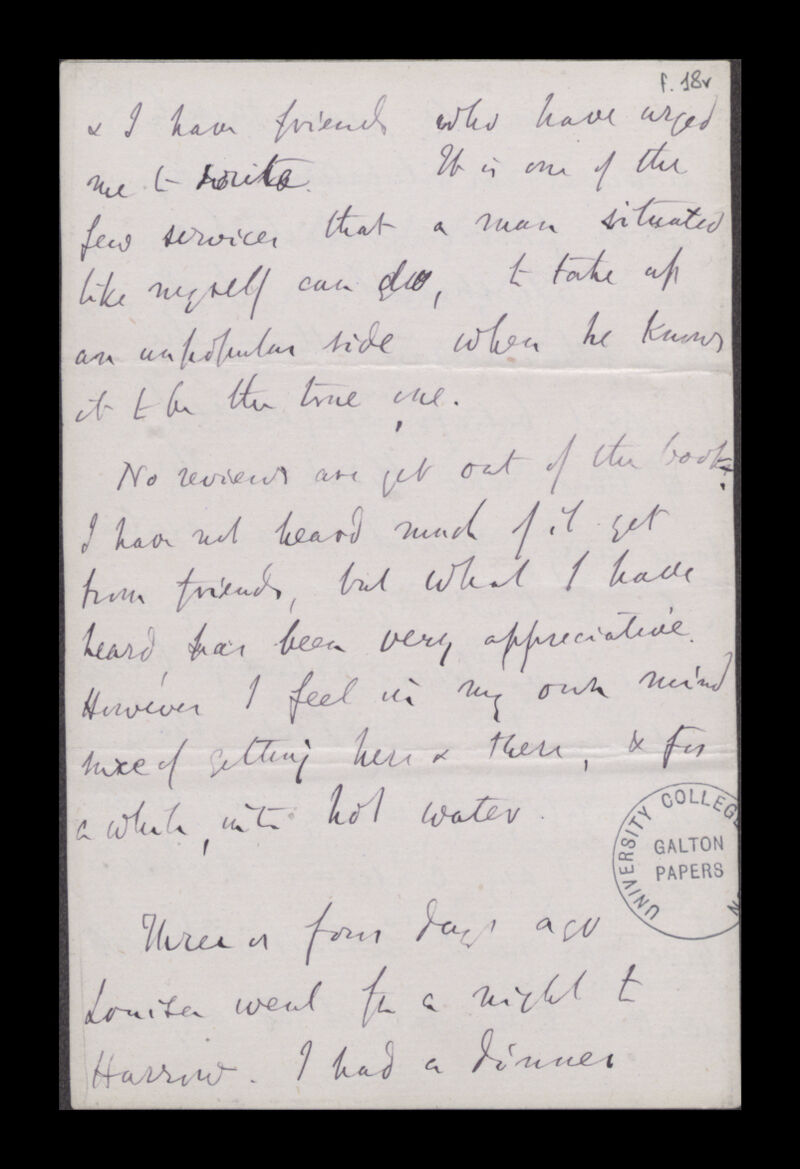 f. 18v
& I have friends who have urged
me to write. It is one of the
few services that a man situated
like myself can do, to take up
an unpopular side when he knows
it to be the true one.
No reviews are yet out of the book.
I have not heard much of it yet
from friends, but what I have
heard, has been very appreciative.
However I feel in my own mind
sure of getting here & there, & for
a while, into hot water.
UNIVERSITY COLLEGE
GALTON
PAPERS
Three or four days ago
Louisa went for a night to
Harrow. I had a dinner